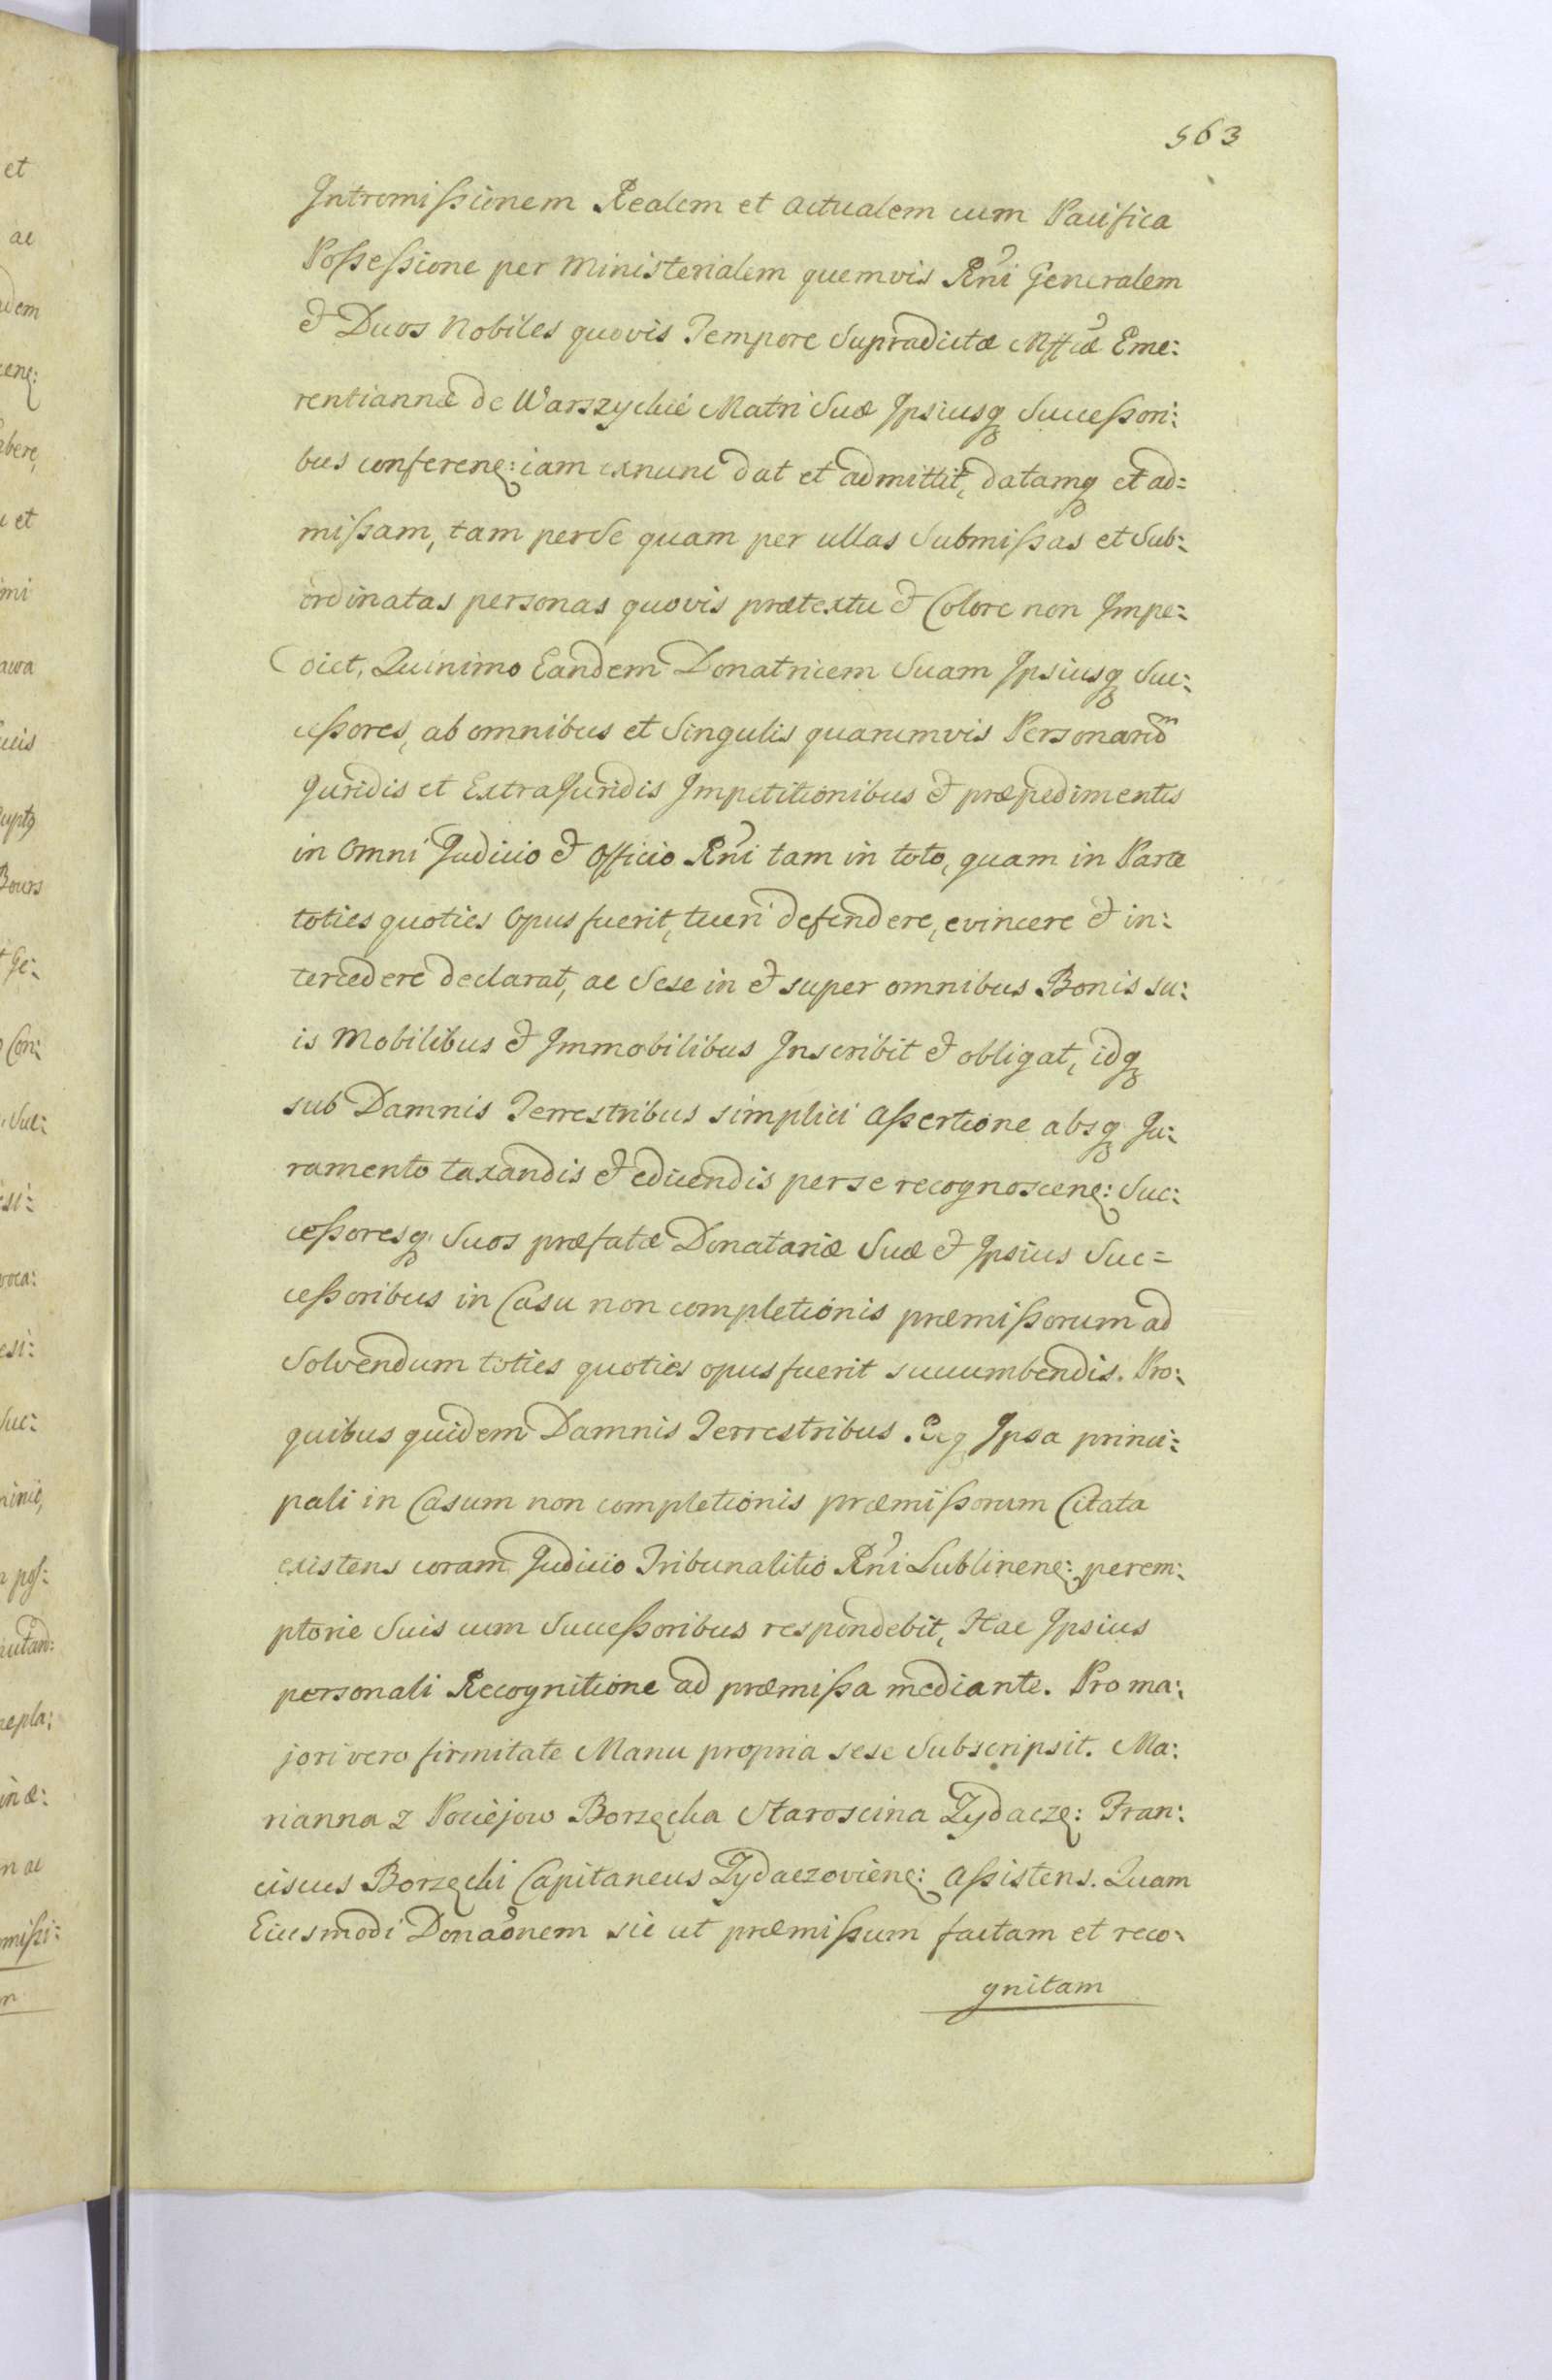 563
Intromißionem Realem et actualem cum Pacifica
Poßeßione per Ministerialem quemvis Rni Generalem
& Duos Nobiles quovis Tempore Supradictæ Mfficæ Eme:
rentiannæ de Warszyckie Matri Suæ Ipsiusq Succeßori:
bus conferen: iam exnunc dat et admittit, datamq et ad=
mißam, tam perSe quam per ullas Submißas et Sub:
ordinatas personas quovis prætextu & Colore non Impe:
diet, Quinimo Eandem Donatricem Suam Ipsiusq Suc:
ceßores, ab omnibus et Singulis quarumvis Personarum
Juridis et ExtraJuridis Impetitionibus & præpedimentis
in Omni Judicio & Officio Rni tam in toto, quam in Parte
toties quoties Opus fuerit, tueri defendere, evincere & in:
tercedere declarat, ac Sese in & super omnibus Bonis su:
is Mobilibus & Immobilibus Inscribit & obligat, idq
sub Damnis Terrestribus simplici aßertione absq Ju:
ramento taxandis & educendis per se recognoscen: Suc:
ceßoresq Suos præfatæ Donatariæ Suæ & Ipsius Suc=
ceßoribus in Casu non completionis præmißorum ad
Solvendum toties quoties opus fuerit succumbendis. Pro:
quibus quidem Damnis Terrestribus Req Ipsa princi:
pali in Casum non completionis præmißorum Citata
existens coram Judicio Tribunalitio Rni Lublinen: perem:
ptorie Suis cum Succeßoribus respondebit, Hac Ipsius
personali Recognitione ad præmißa mediante. Pro ma:
jori vero firmitate Manu propria sese Subscripsit. Ma:
rianna z Pociejow Borzęcka Staroscina Zydacze: Fran:
ciscus Borzęcki Capitaneus Zydaczovien: aßistens. Quam
Eiusmodi Donaonem sic ut præmißum factam et reco:
gnitam